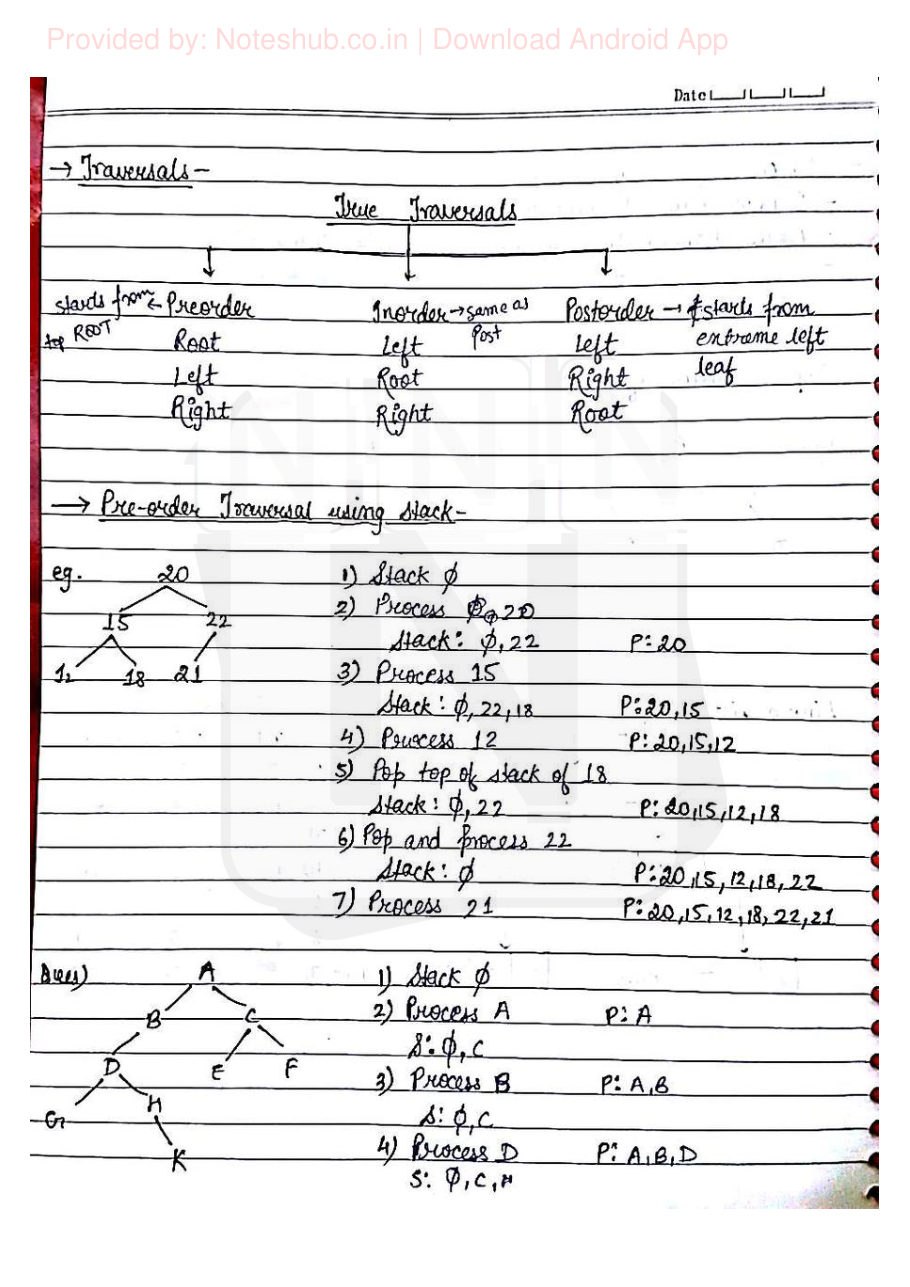 Provided by: Noteshub.co.in | Download Android App
Date
→ Traversals -
True Traversals
starts from ← Preorder Inorder → same as Postorder → starts from
top ROOT Root Left Post Left extreme left
Left Root Right leaf
Right Right Root
→ Pre-order Traversal using stack -
eg. 20 1) Stack φ
2) Process 20
15 22 Stack: φ, 22 P: 20
12 18 21 3) Process 15
Stack: φ, 22, 18 P: 20, 15
4) Process 12 P: 20, 15, 12
5) Pop top of stack of 18
Stack: φ, 22 P: 20, 15, 12, 18
6) Pop and process 22
Stack: φ P: 20, 15, 12, 18, 22
7) Process 21 P: 20, 15, 12, 18, 22, 21
Ques) A 1) Stack φ
B C 2) Process A P: A
S: φ, C
D E F 3) Process B P: A, B
G H S: φ, C
K 4) Process D P: A, B, D
S: φ, C, H